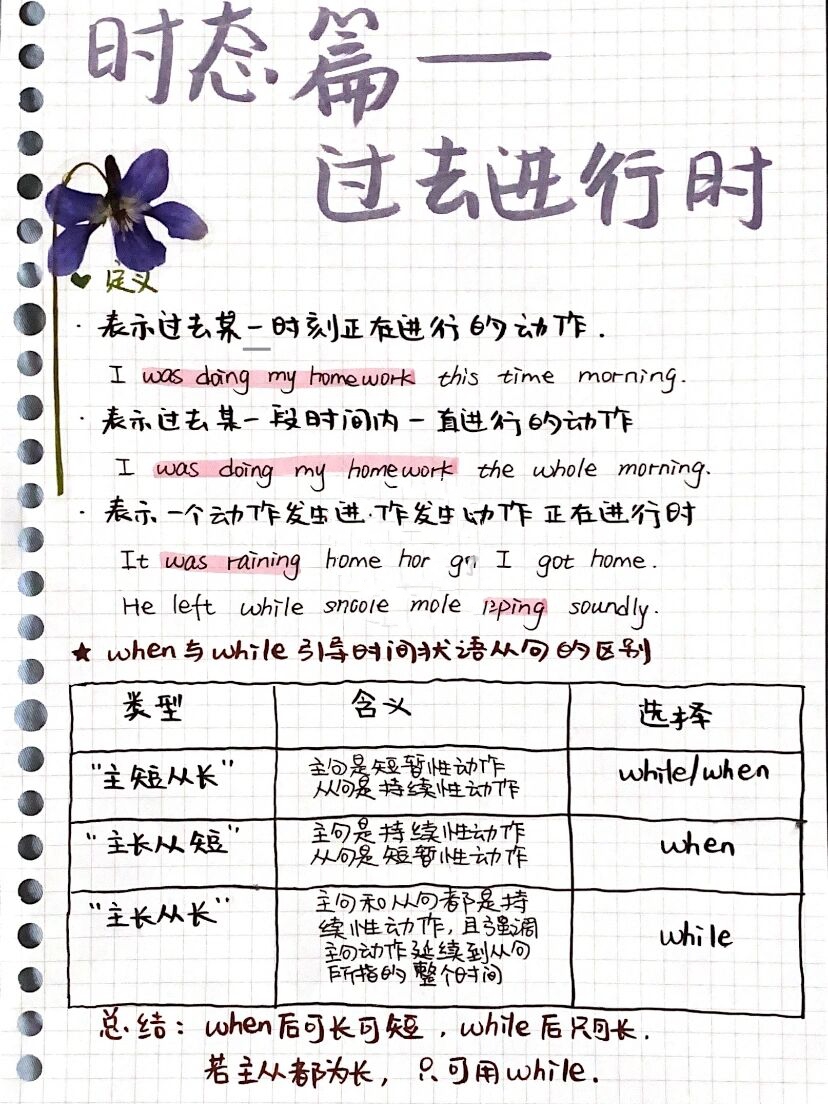 时态篇——
过去进行时
定义
· 表示过去某一时刻正在进行的动作.
I was doing my homework this time morning.
· 表示过去某一段时间内一直进行的动作
I was doing my homework the whole morning.
· 表示一个动作发生进·作发生动作正在进行时
It was raining home hor I got home.
He left while mole soundly.
★ when与while引导时间状语从句的区别
类型 含义 选择
"主短从长" 主句是短暂性动作 while/when
从句是持续性动作
"主长从短" 主句是持续性动作 when
从句是短暂性动作
"主长从长" 主句和从句都是持 while
续性动作,且强调
主句动作延续到从句
所指的整个时间
总结:when后可长可短,while后只可长.
若主从都为长,只可用while.